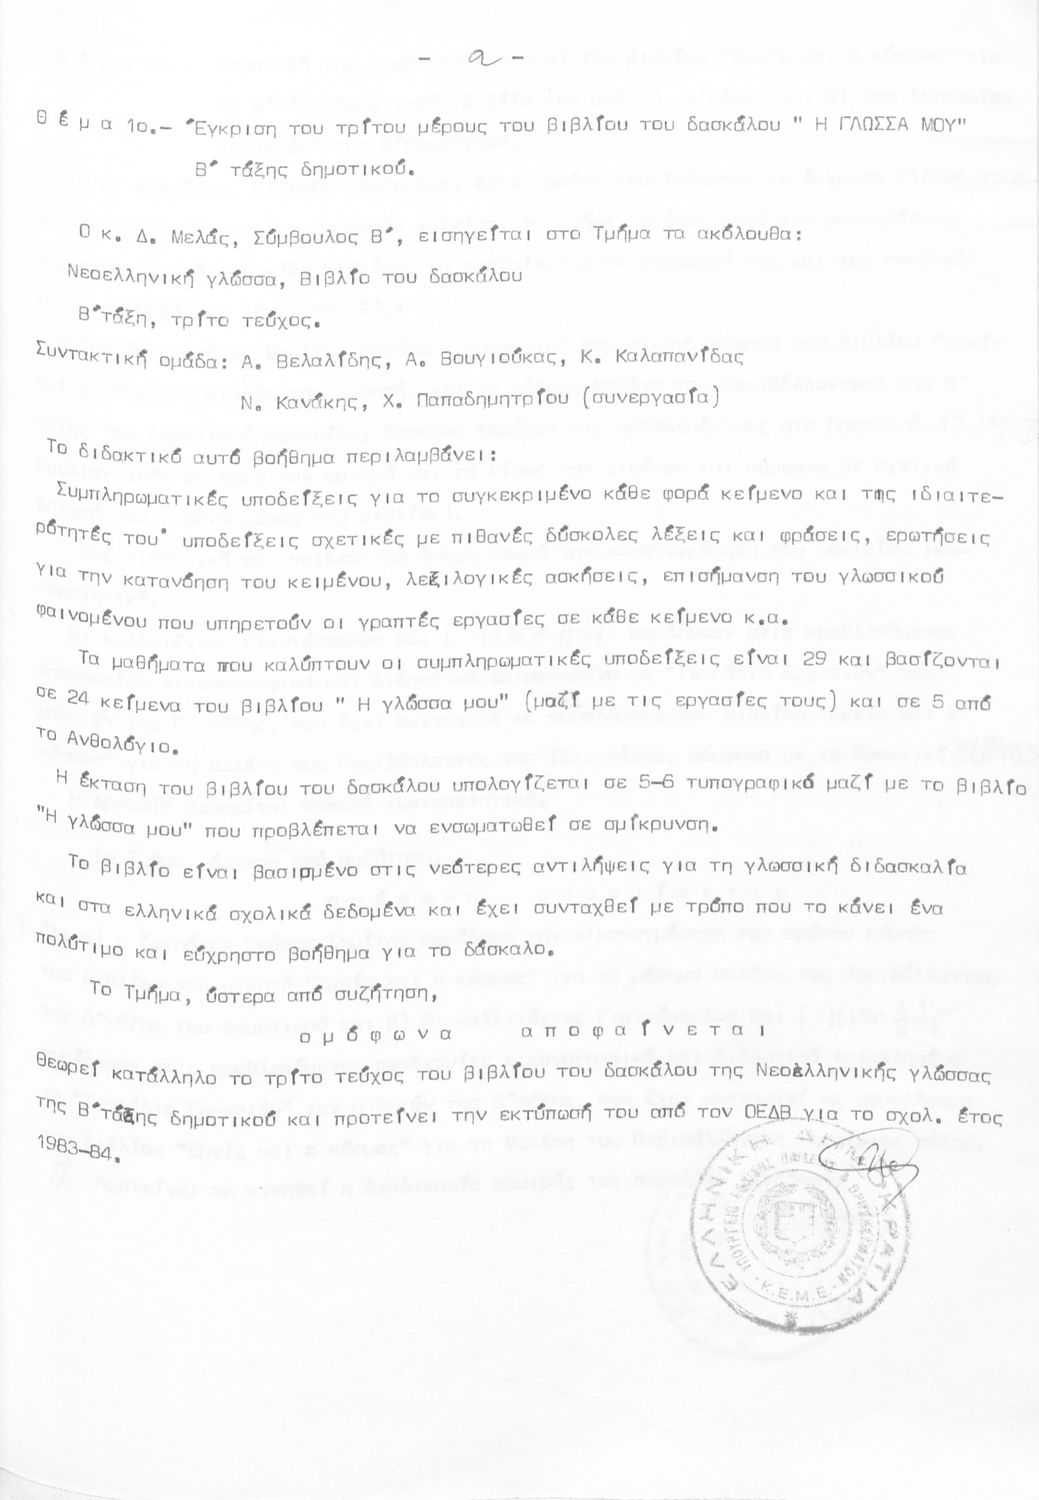 - α -
Θ έ μ α 1ο.- Έγκριση του τρίτου μέρους του βιβλίου του δασκάλου " Η ΓΛΩΣΣΑ ΜΟΥ"
Β΄ τάξης δημοτικού.
Ο κ. Δ. Μελάς, Σύμβουλος Β΄, εισηγείται στο Τμήμα τα ακόλουθα:
Νεοελληνική γλώσσα, Βιβλίο του δασκάλου
Β΄τάξη, τρίτο τεύχος.
Συντακτική ομάδα: Α. Βελαλίδης, Α. Βουγιούκας, Κ. Καλαπανίδας
Ν. Κανάκης, Χ. Παπαδημητρίου (συνεργασία)
Το διδακτικό αυτό βοήθημα περιλαμβάνει:
Συμπληρωματικές υποδείξεις για το συγκεκριμένο κάθε φορά κείμενο και της ιδιαιτε-
ρότητές του· υποδείξεις σχετικές με πιθανές δύσκολες λέξεις και φράσεις, ερωτήσεις
για την κατανόηση του κειμένου, λεξιλογικές ασκήσεις, επισήμανση του γλωσσικού
φαινομένου που υπηρετούν οι γραπτές εργασίες σε κάθε κείμενο κ.α.
Τα μαθήματα που καλύπτουν οι συμπληρωματικές υποδείξεις είναι 29 και βασίζονται
σε 24 κείμενα του βιβλίου " Η γλώσσα μου" (μαζί με τις εργασίες τους) και σε 5 από
το Ανθολόγιο.
Η έκταση του βιβλίου του δασκάλου υπολογίζεται σε 5-6 τυπογραφικά μαζί με το βιβλίο
"Η γλώσσα μου" που προβλέπεται να ενσωματωθεί σε σμίκρυνση.
Το βιβλίο είναι βασισμένο στις νεότερες αντιλήψεις για τη γλωσσική διδασκαλία
και στα ελληνικά σχολικά δεδομένα και έχει συνταχθεί με τρόπο που το κάνει ένα
πολύτιμο και εύχρηστο βοήθημα για το δάσκαλο.
Το Τμήμα, ύστερα από συζήτηση,
ο μ ό φ ω ν α α π ο φ α ί ν ε τ α ι
Θεωρεί κατάλληλο το τρίτο τεύχος του βιβλίου του δασκάλου της Νεοελληνικής γλώσσας
της Β΄τάξης δημοτικού και προτείνει την εκτύπωσή του από τον ΟΕΔΒ για το σχολ. έτος
1983-84.
ΕΛΛΗΝΙΚΗ ΔΗΜΟΚΡΑΤΙΑ
ΥΠΟΥΡΓΕΙΟ ΕΘΝΙΚΗΣ ΠΑΙΔΕΙΑΣ & ΘΡΗΣΚΕΥΜΑΤΩΝ
Κ.Ε.Μ.Ε.